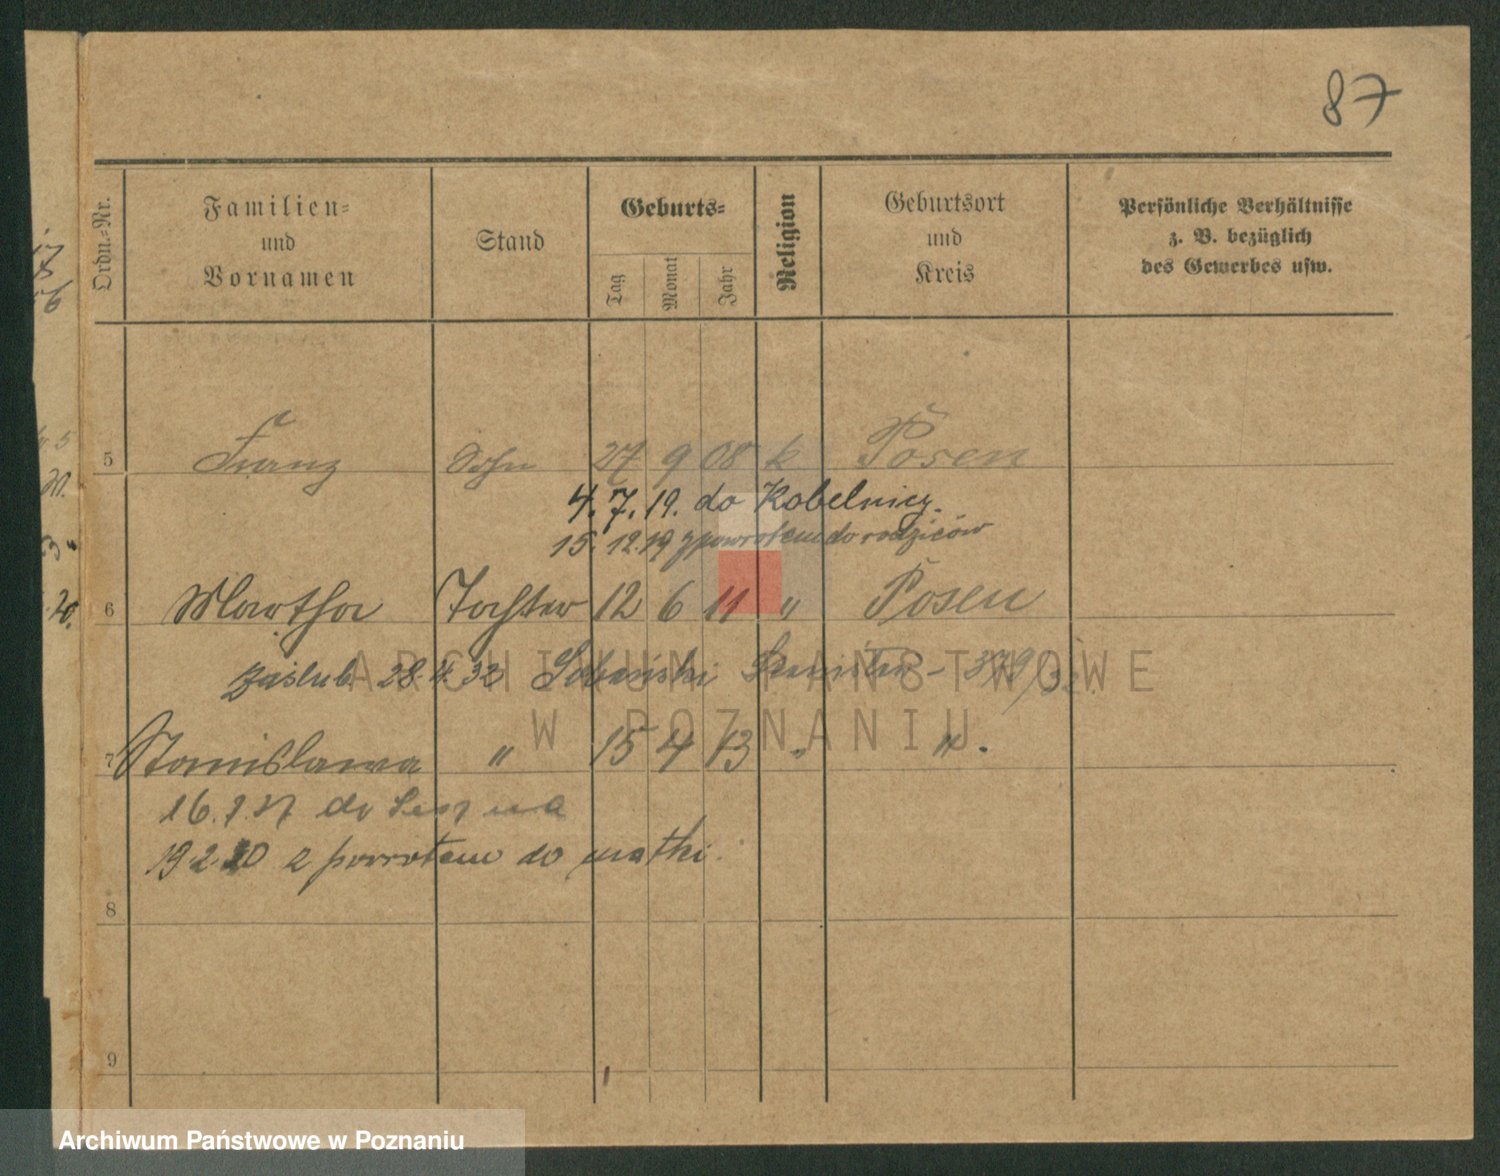 87
Ordn.=Nr.
Familien=
und
Vornamen
Stand
Geburts=
Tag
Monat
Jahr
Religion
Geburtsort
und
Kreis
Persönliche Verhältnisse
z. B. bezüglich
des Gewerbes usw.
5 Franz Sohn 27 9 08 k Posen
4.7.19. do Kobelnicy.
15.12.19 z powrotem do rodziców
6 Martha Tochter 12 6 11 " Posen
zaślub. 28.4.32
ARCHIWUM PAŃSTWOWE
W POZNANIU
7 Stanislawa " 15 4 13 " "
16. do
19 2 20 z powrotem do matki.
8
9
Archiwum Państwowe w Poznaniu